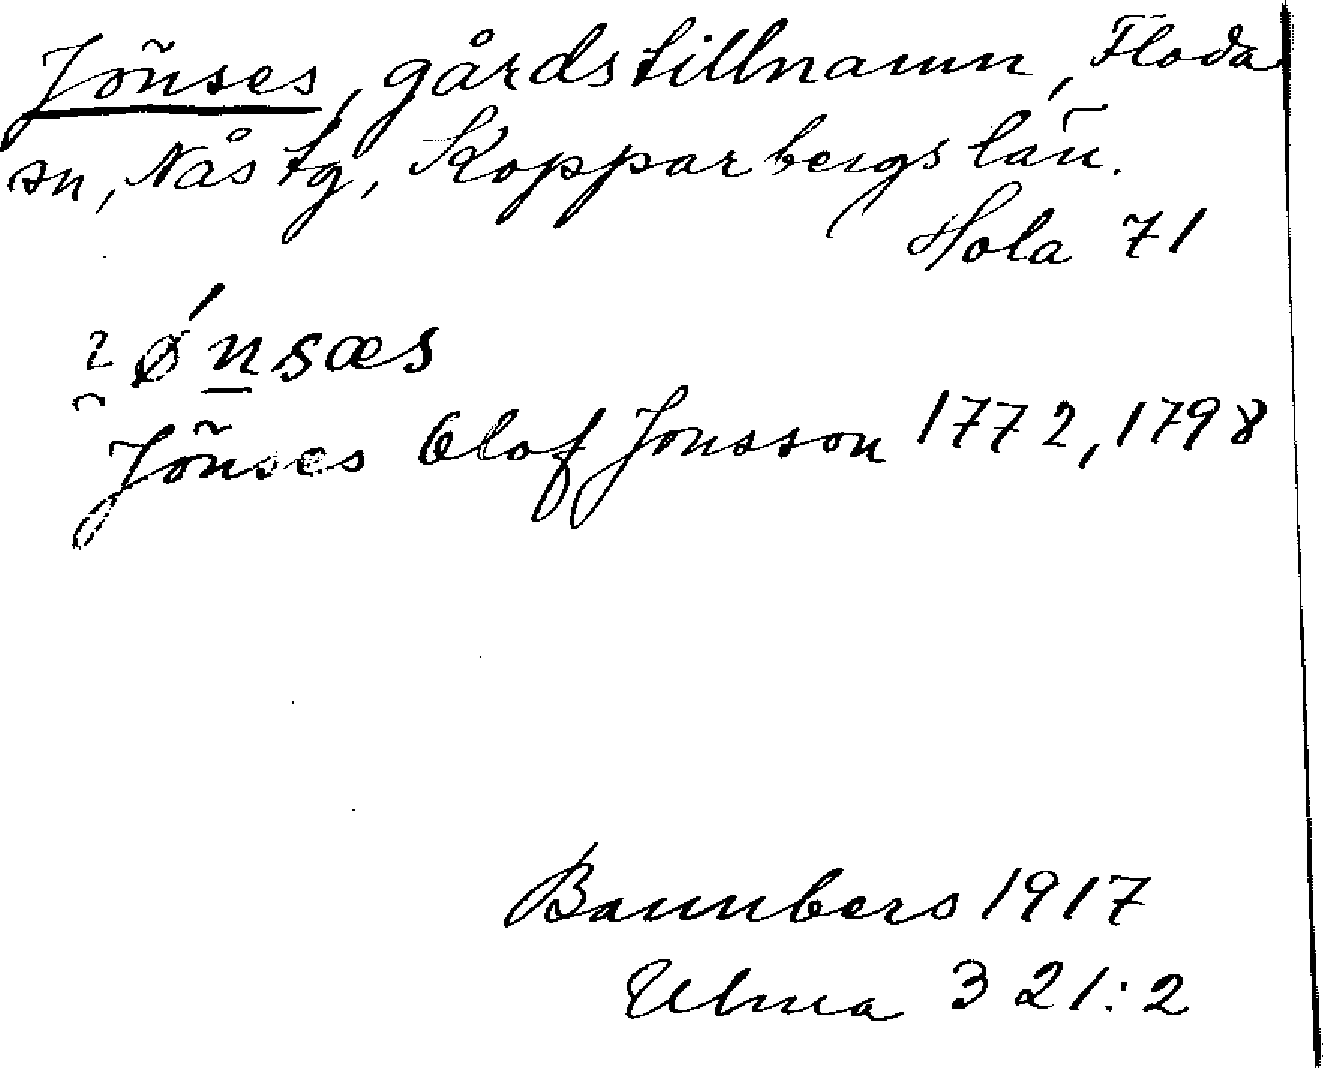 Jönses, gårdstillnamn, Floda
sn, Nås tg, Kopparbergs län.
Hola 71
ønsæs
Jönses Olof Jonsson 1772, 1798
1917
Ulma 321:2